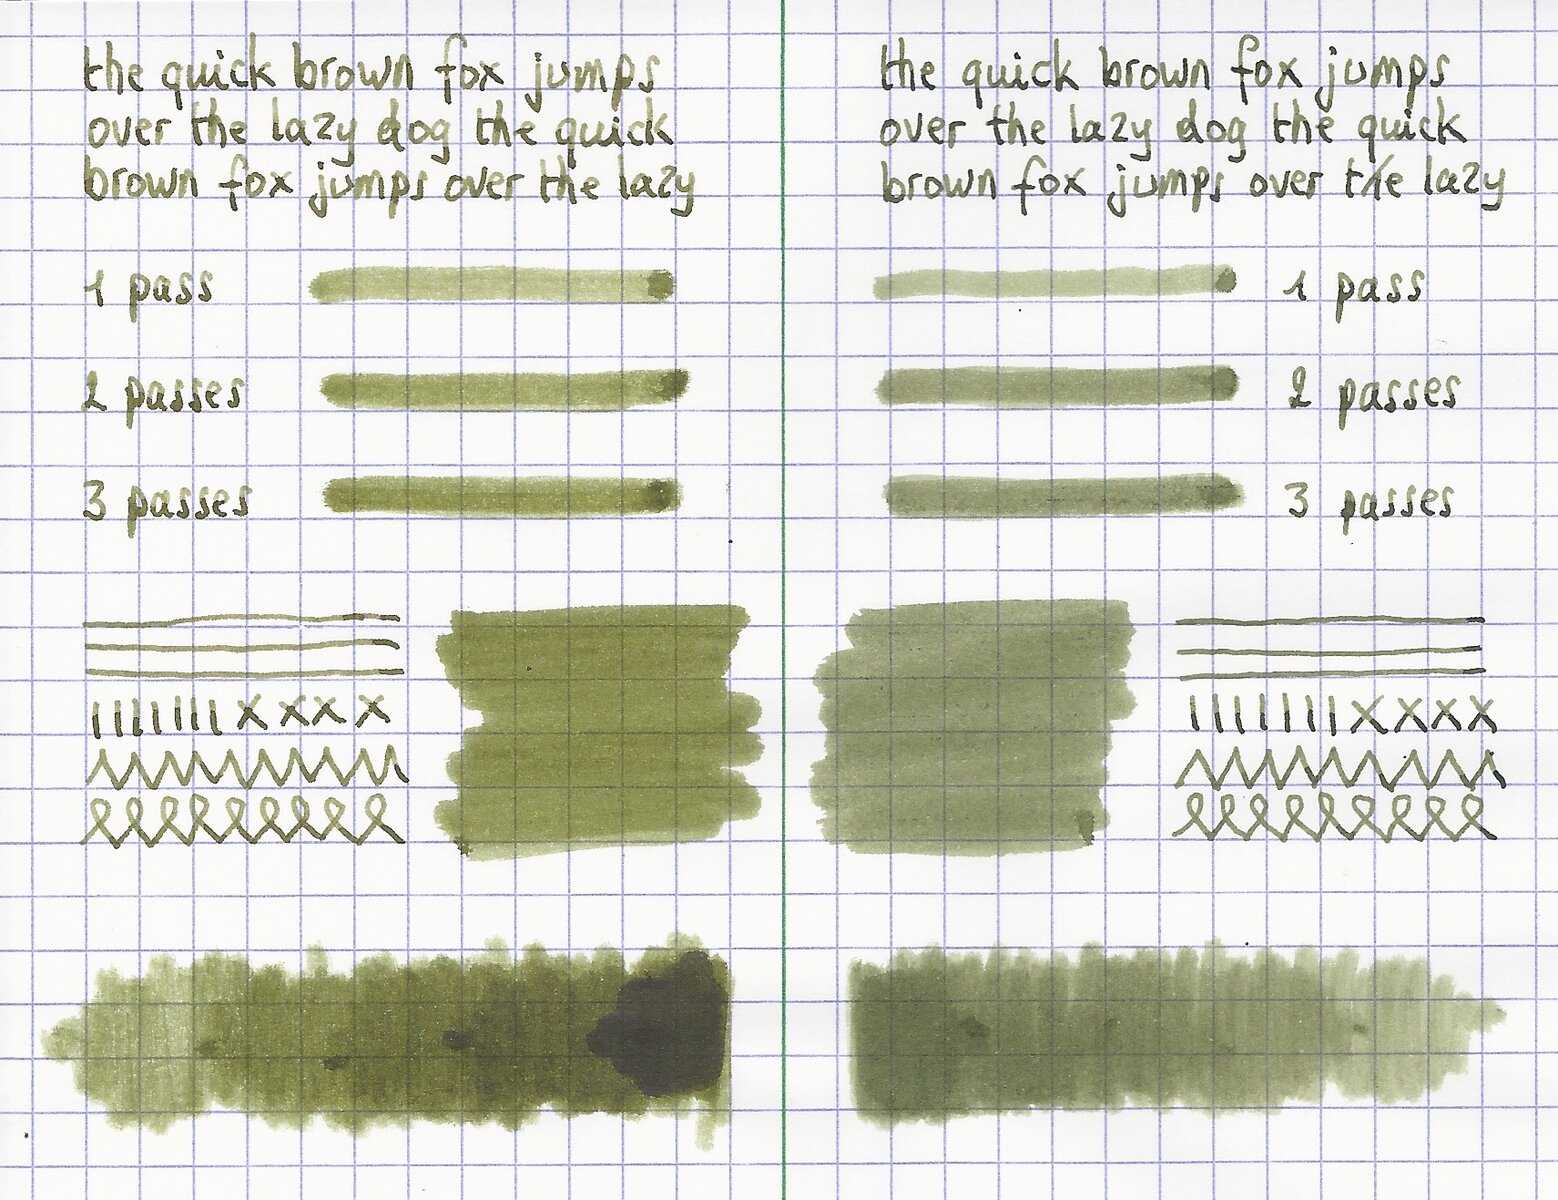 the quick brown fox jumps
over the lazy dog the quick
brown fox jumps over the lazy
1 pass
2 passes
3 passes
the quick brown fox jumps
over the lazy dog the quick
brown fox jumps over the lazy
1 pass
2 passes
3 passes
xxxx
xxxx